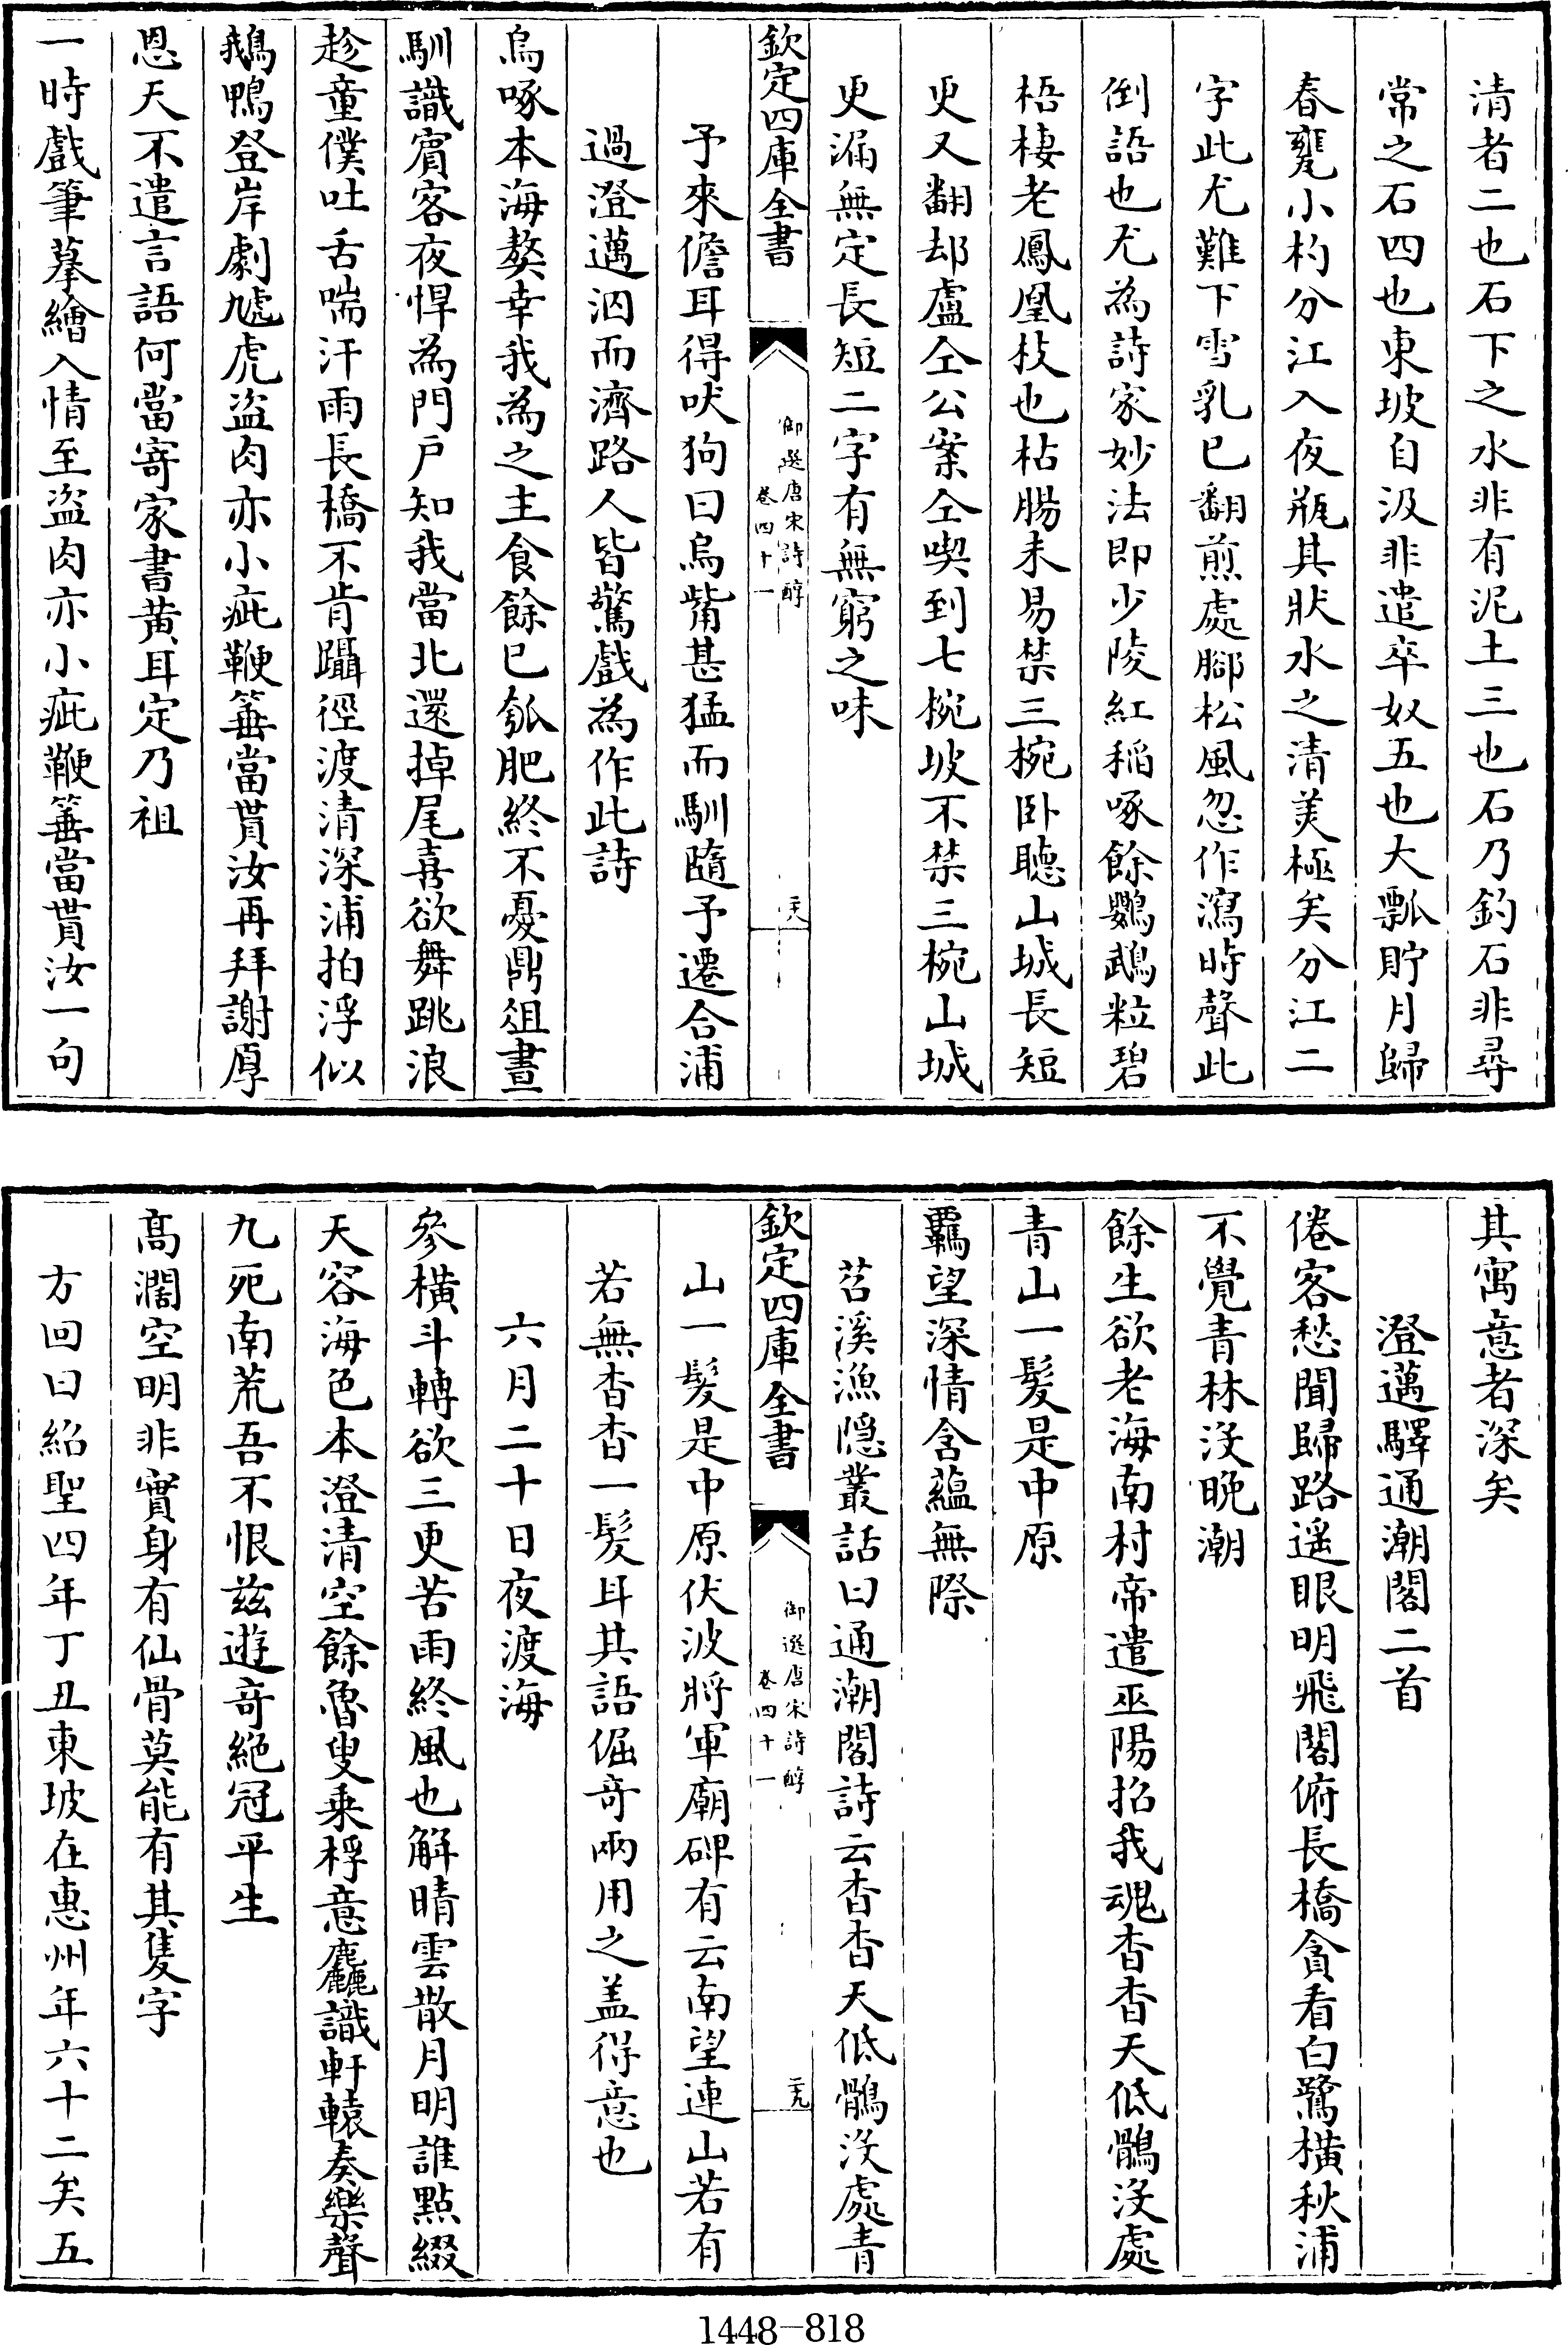 清者二也石下之水非有泥土三也石乃釣石非尋
常之石四也東坡自汲非遣卒奴五也大瓢貯月歸
春甕小杓分江入夜瓶其狀水之清美極矣分江二
字此尤難下雪乳已翻煎處腳松風忽作瀉時聲此
倒語也尤為詩家妙法即少陵紅稻啄餘鸚鵡粒碧
梧棲老鳳凰枝也枯腸未易禁三椀卧聽山城長短
更又翻却盧仝公案仝喫到七椀坡不禁三椀山城
更漏無定長短二字有無窮之味
欽定四庫全書
御選唐宋詩醇
卷四十一
二十八
予來儋耳得吠狗曰烏觜甚猛而馴隨予遷合浦
過澄邁泅而濟路人皆驚戲為作此詩
烏啄本海獒幸我為之主食餘已瓠肥終不憂鼎俎晝
馴識賓客夜悍為門户知我當北還掉尾喜欲舞跳浪
趁童僕吐舌喘汗雨長橋不肯躡徑渡清深浦拍浮似
鵝鴨登岸劇虓虎盜肉亦小疵鞭箠當貰汝再拜謝厚
恩天不遣言語何當寄家書黄耳定乃祖
一時戲筆摹繪入情至盜肉亦小疵鞭箠當貰汝一句
其寓意者深矣
澄邁驛通潮閣二首
倦客愁聞歸路遥眼明飛閣俯長橋貪看白鷺橫秋浦
不覺青林沒晚潮
餘生欲老海南村帝遣巫陽招我魂杳杳天低鶻沒處
青山一髮是中原
羈望深情含蘊無際
苕溪漁隱叢話曰通潮閣詩云杳杳天低鶻沒處青
欽定四庫全書
御選唐宋詩醇
卷四十一
二十九
山一髮是中原伏波將軍廟碑有云南望連山若有
若無杳杳一髮耳其語倔竒兩用之盖得意也
六月二十日夜渡海
參橫斗轉欲三更苦雨終風也解晴雲散月明誰點綴
天容海色本澄清空餘魯叟乗桴意麤識軒轅奏樂聲
九死南荒吾不恨兹遊竒絶冠平生
高濶空明非實身有仙骨莫能有其隻字
方回曰紹聖四年丁丑東坡在惠州年六十二矣五
1448-818